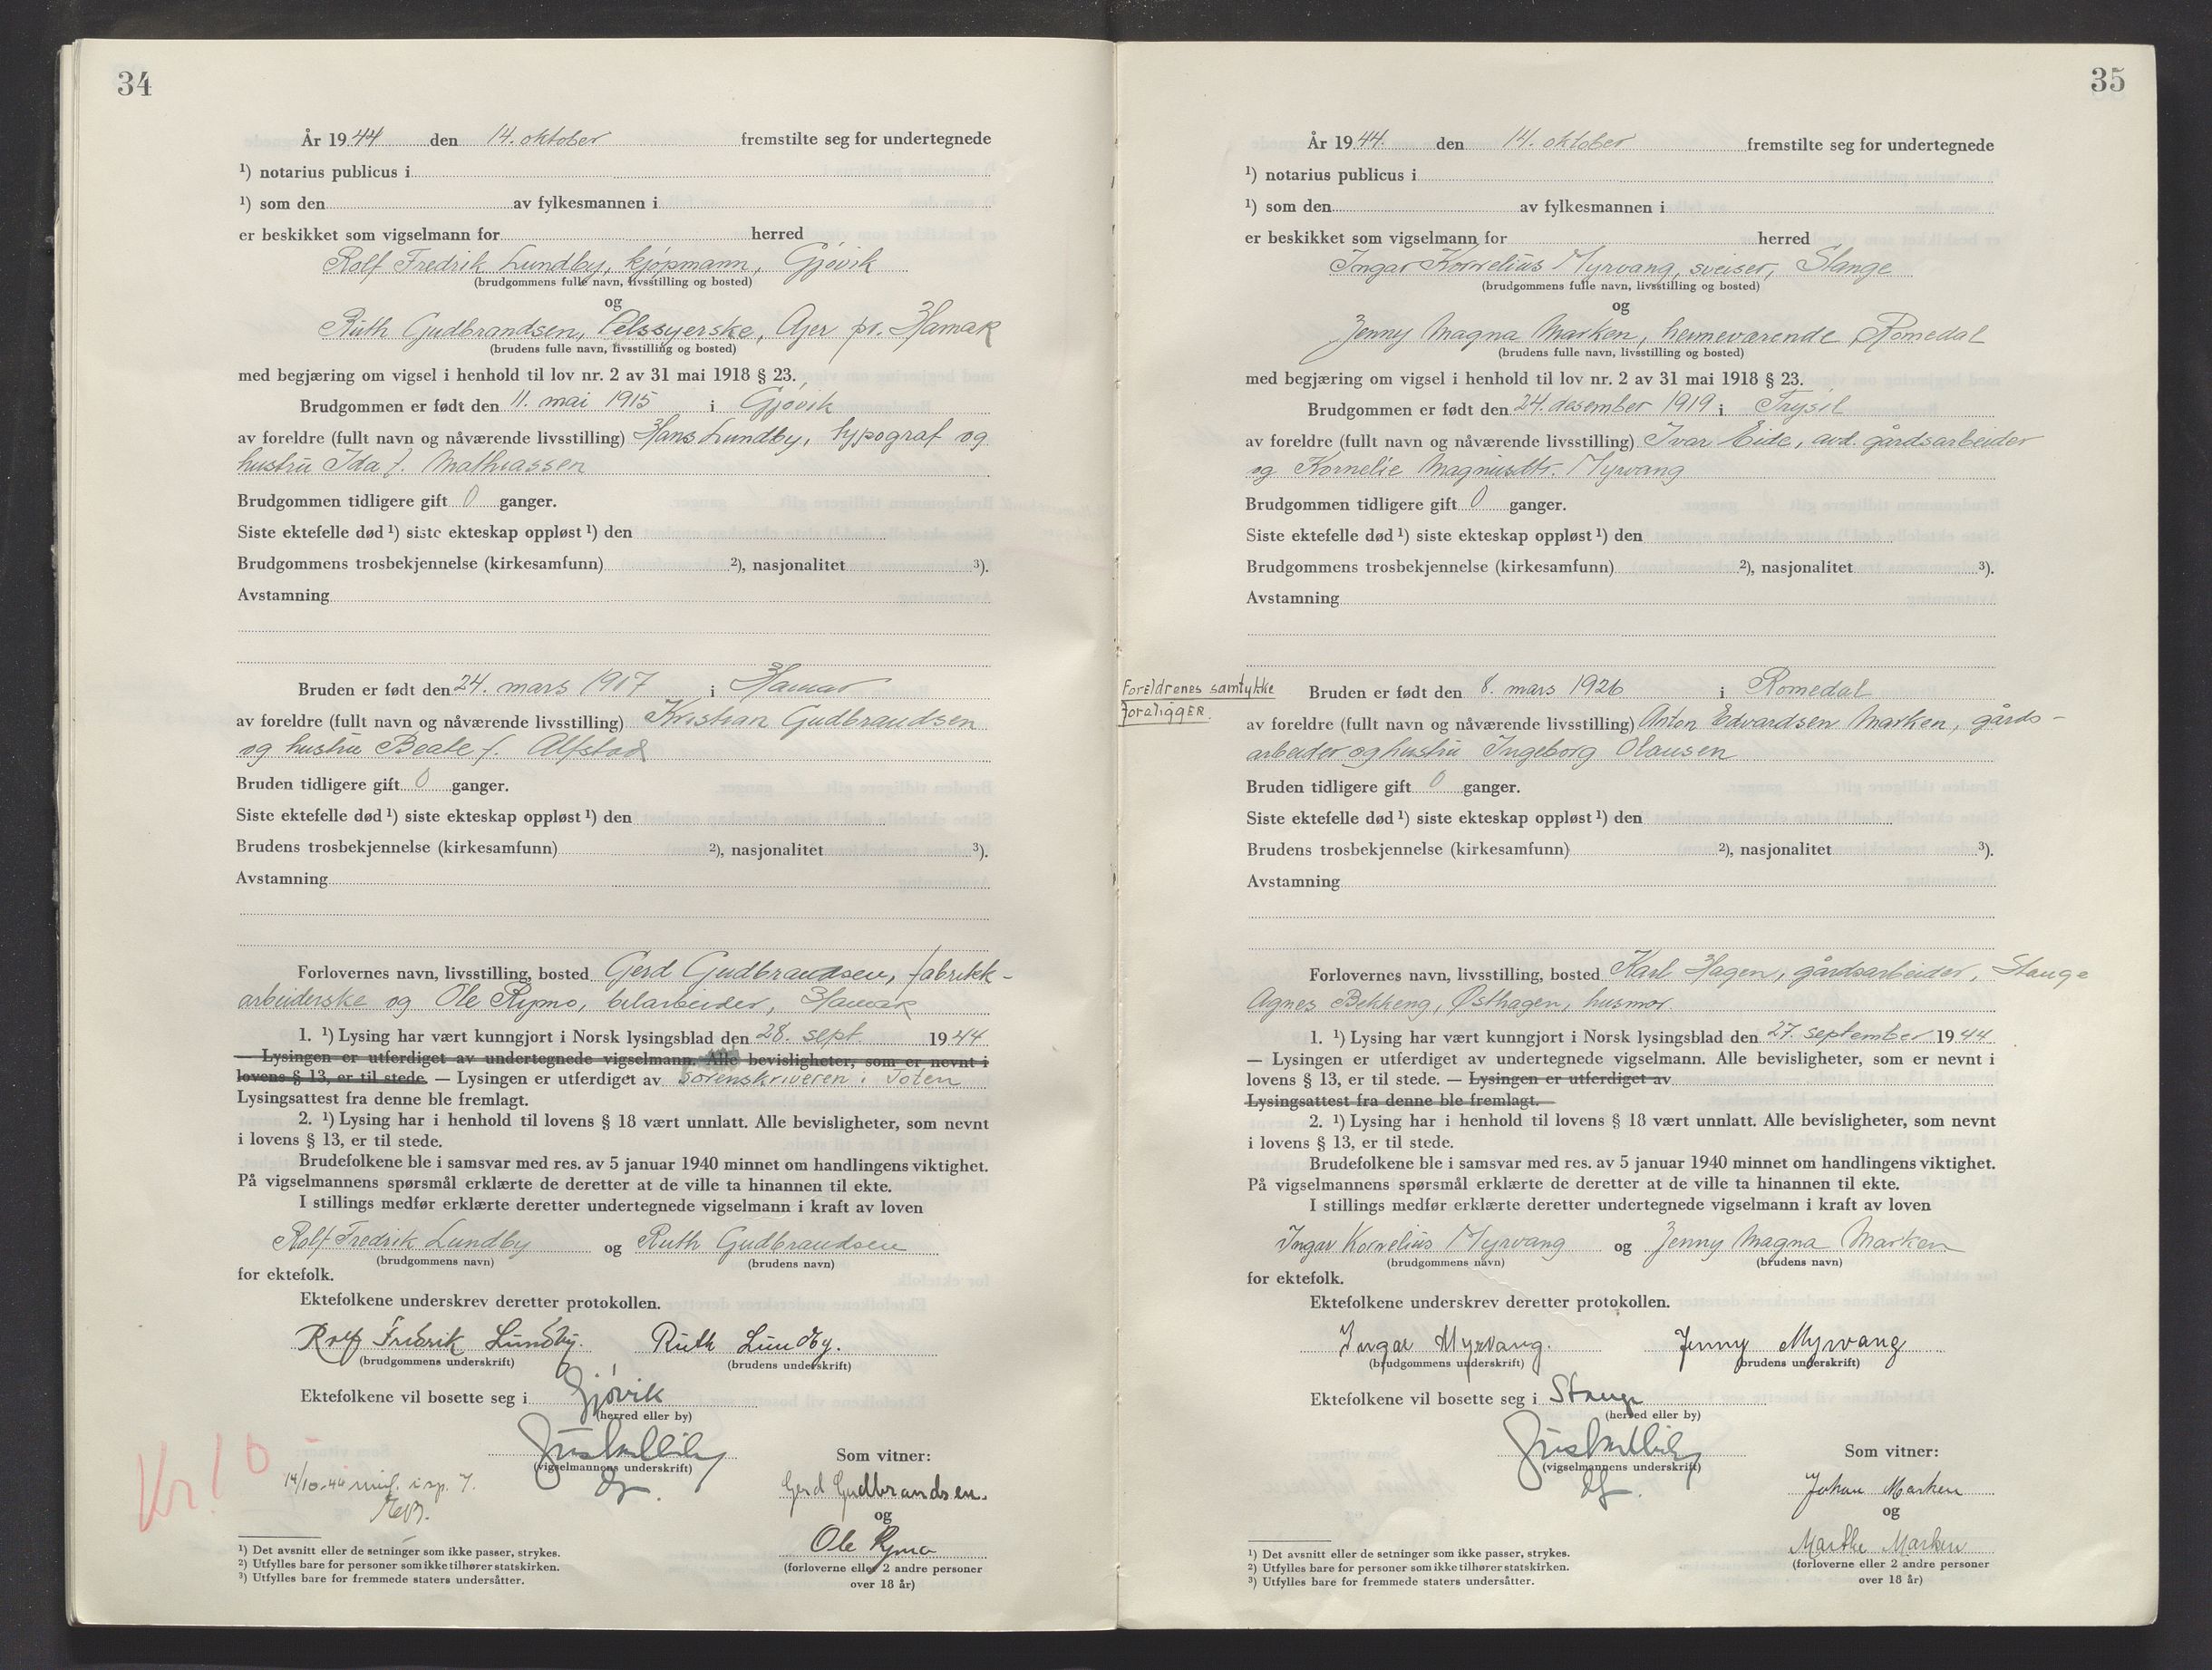 34
År 1944 den 14. oktober fremstilte seg for undertegnede
¹) notarius publicus i
¹) som den av fylkesmannen i
er beskikket som vigselmann for herred
Rolf Fredrik Lundby, kjøpmann, Gjøvik
(brudgommens fulle navn, livsstilling og bosted)
og
Ruth Gudbrandsen, Pelssyerske, Ajer pr. Hamar
(brudens fulle navn, livsstilling og bosted)
med begjæring om vigsel i henhold til lov nr. 2 av 31 mai 1918 § 23.
Brudgommen er født den 11. mai 1915 i Gjøvik
av foreldre (fullt navn og nåværende livsstilling) Hans Lundby, typograf og
hustru Ida f. Mathiassen
Brudgommen tidligere gift 0 ganger.
Siste ektefelle død ¹) siste ekteskap oppløst ¹) den
Brudgommens trosbekjennelse (kirkesamfunn) ²), nasjonalitet ³).
Avstamning
Bruden er født den 24. mars 1917 i Hamar
av foreldre (fullt navn og nåværende livsstilling) Kristian Gudbrandsen
og hustru Beate f. Alfstad
Bruden tidligere gift 0 ganger.
Siste ektefelle død ¹) siste ekteskap oppløst ¹) den
Brudens trosbekjennelse (kirkesamfunn) ²), nasjonalitet ³).
Avstamning
Forlovernes navn, livsstilling, bosted Gerd Gudbrandsen, fabrikk-
arbeiderske og Ole Rymo, bilarbeider, Hamar
1. ¹) Lysing har vært kunngjort i Norsk lysingsblad den 28. sept. 1944
— Lysingen er utferdiget av undertegnede vigselmann. Alle bevisligheter, som er nevnt i
lovens § 13, er til stede. — Lysingen er utferdiget av sorenskriveren i Toten
Lysingsattest fra denne ble fremlagt.
2. ¹) Lysing har i henhold til lovens § 18 vært unnlatt. Alle bevisligheter, som nevnt
i lovens § 13, er til stede.
Brudefolkene ble i samsvar med res. av 5 januar 1940 minnet om handlingens viktighet.
På vigselmannens spørsmål erklærte de deretter at de ville ta hinannen til ekte.
I stillings medfør erklærte deretter undertegnede vigselmann i kraft av loven
Rolf Fredrik Lundby og Ruth Gudbrandsen
(brudgommens navn) (brudens navn)
for ektefolk.
Ektefolkene underskrev deretter protokollen.
Rolf Fredrik Lundby. Ruth Lundby.
(brudgommens underskrift) (brudens underskrift)
Ektefolkene vil bosette seg i Gjøvik
(herred eller by)
(vigselmannens underskrift)
Kr. 10
14/10-44
Som vitner:
Gerd Gudbrandsen.
og
Ole Rymo
(forloverne eller 2 andre personer
over 18 år)
¹) Det avsnitt eller de setninger som ikke passer, strykes.
²) Utfylles bare for personer som ikke tilhører statskirken.
³) Utfylles bare for fremmede staters undersåtter.
35
År 1944. den 14. oktober fremstilte seg for undertegnede
¹) notarius publicus i
¹) som den av fylkesmannen i
er beskikket som vigselmann for herred
Ingar Kornelius Myrvang, sveiser, Stange
(brudgommens fulle navn, livsstilling og bosted)
og
Jenny Magna Marken, hjemmeværende Romedal
(brudens fulle navn, livsstilling og bosted)
med begjæring om vigsel i henhold til lov nr. 2 av 31 mai 1918 § 23.
Brudgommen er født den 24. desember 1919 i Trysil
av foreldre (fullt navn og nåværende livsstilling) Ivar Eide, avd. gårdsarbeider
og Kornelie Magnusdtr. Myrvang
Brudgommen tidligere gift 0 ganger.
Siste ektefelle død ¹) siste ekteskap oppløst ¹) den
Brudgommens trosbekjennelse (kirkesamfunn) ²), nasjonalitet ³).
Avstamning
Foreldrenes samtykke
foreligger.
Bruden er født den 8. mars 1926 i Romedal
av foreldre (fullt navn og nåværende livsstilling) Anton Edvardsen Marken, gårds-
arbeider og hustru Ingeborg Olausen
Bruden tidligere gift 0 ganger.
Siste ektefelle død ¹) siste ekteskap oppløst ¹) den
Brudens trosbekjennelse (kirkesamfunn) ²), nasjonalitet ³).
Avstamning
Forlovernes navn, livsstilling, bosted Karl Hagen, gårdsarbeider, Stange
Agnes Bekkeng, Østhagen, husmor
1. ¹) Lysing har vært kunngjort i Norsk lysingsblad den 27. september 1944
— Lysingen er utferdiget av undertegnede vigselmann. Alle bevisligheter, som er nevnt i
lovens § 13, er til stede. — Lysingen er utferdiget av
Lysingsattest fra denne ble fremlagt.
2. ¹) Lysing har i henhold til lovens § 18 vært unnlatt. Alle bevisligheter, som nevnt
i lovens § 13, er til stede.
Brudefolkene ble i samsvar med res. av 5 januar 1940 minnet om handlingens viktighet.
På vigselmannens spørsmål erklærte de deretter at de ville ta hinannen til ekte.
I stillings medfør erklærte deretter undertegnede vigselmann i kraft av loven
Ingar Kornelius Myrvang og Jenny Magna Marken
(brudgommens navn) (brudens navn)
for ektefolk.
Ektefolkene underskrev deretter protokollen.
Ingar Myrvang. Jenny Myrvang
(brudgommens underskrift) (brudens underskrift)
Ektefolkene vil bosette seg i Stange
(herred eller by)
(vigselmannens underskrift)
Som vitner:
Johan Marken
og
Marthe Marken
(forloverne eller 2 andre personer
over 18 år)
¹) Det avsnitt eller de setninger som ikke passer, strykes.
²) Utfylles bare for personer som ikke tilhører statskirken.
³) Utfylles bare for fremmede staters undersåtter.